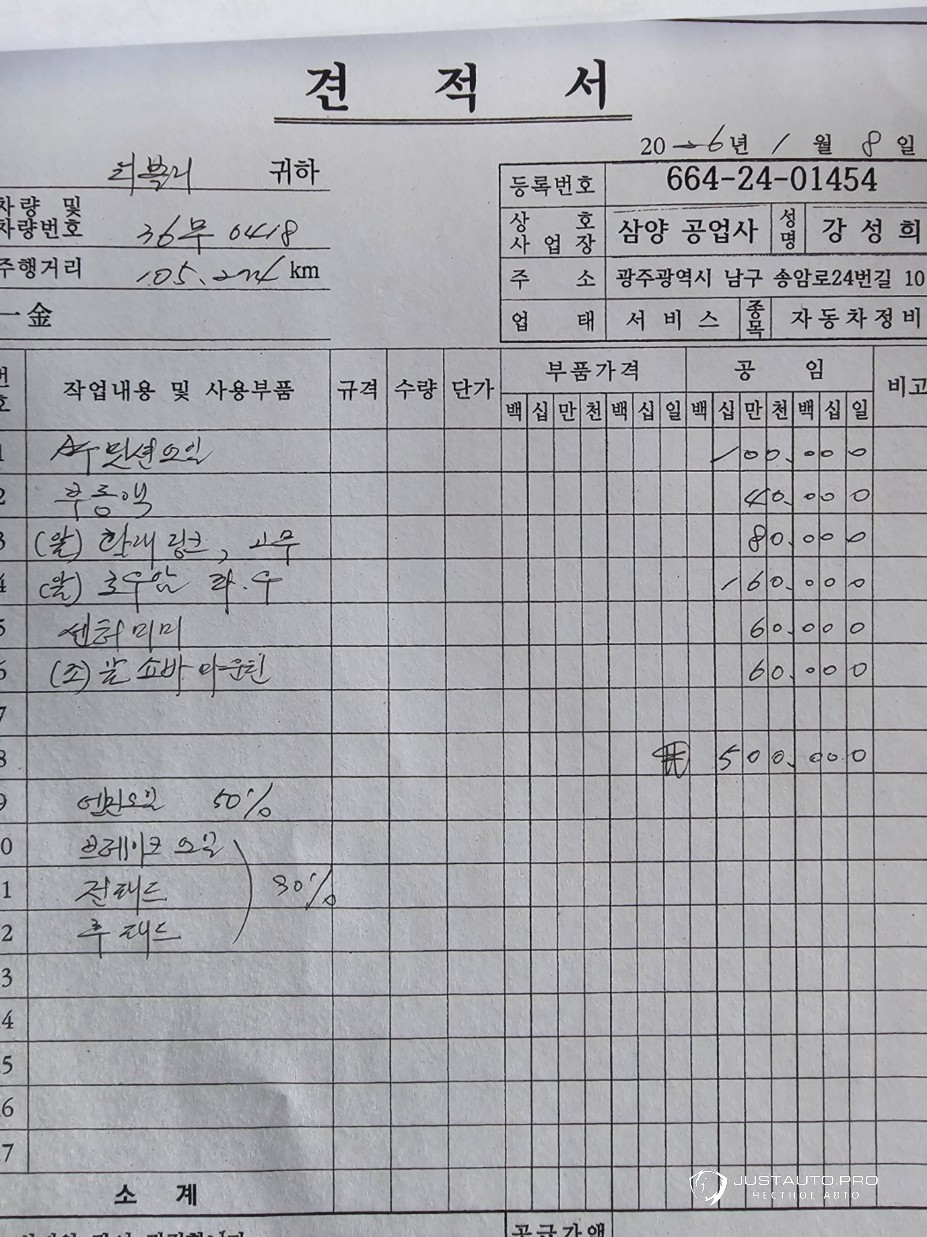 견 적 서
20 26년 1 월 8 일
러블리 귀하
등록번호 664-24-01454
차량 및
차량번호 36무 0418
상 호
사 업 장 삼양 공업사 성명 강 성 희
주행거리 105.224 km
주 소 광주광역시 남구 송암로24번길 10
一金
업 태 서 비 스 종목 자동차정비
번호 작업내용 및 사용부품 규격 수량 단가 부품가격 공 임 비고
백 십 만 천 백 십 일 백 십 만 천 백 십 일
1 밋션오일 100.000
2 부동액 40.000
3 (앞) 활대링크, 고무 80.000
4 (앞) 로우암 좌.우 160.000
5 센터미미 60.000
6 (조) 앞 쇼바 마운틴 60.000
7
8 ₩ 500.000
9 엔진오일 50%
0 브레이크 오일
1 전패드 30%
2 후 패드
3
4
5
6
7
JUSTAUTO.PRO
ЧЕСТНОЕ АВТО
소 계
공급가액